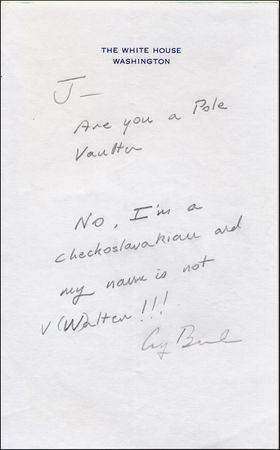 THE WHITE HOUSE
WASHINGTON
J—
Are you a Pole
Vaulter
No, I'm a
checkoslavakian and
my name is not
V(Walter!!!